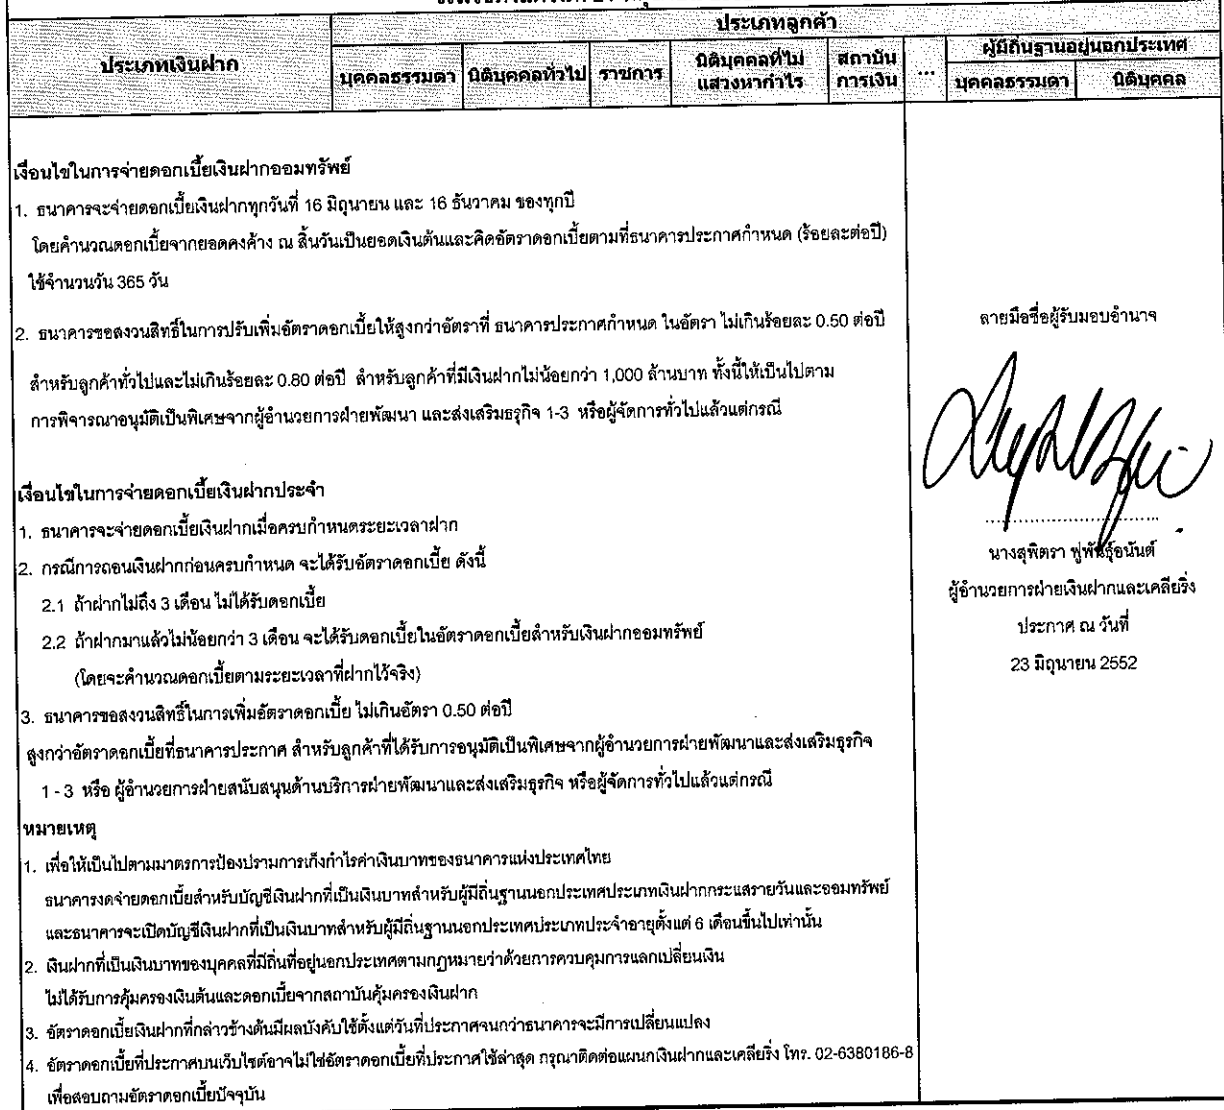 ประเภทลูกค้า
ประเภทเงินฝาก
บุคคลธรรมดา นิติบุคคลทั่วไป ราชการ นิติบุคคลที่ไม่แสวงหากำไร สถาบันการเงิน ... ผู้มีถิ่นฐานอยู่นอกประเทศ
บุคคลธรรมดา นิติบุคคล
เงื่อนไขในการจ่ายดอกเบี้ยเงินฝากออมทรัพย์
1. ธนาคารจะจ่ายดอกเบี้ยเงินฝากทุกวันที่ 16 มิถุนายน และ 16 ธันวาคม ของทุกปี
โดยคำนวณดอกเบี้ยจากยอดคงค้าง ณ สิ้นวันเป็นยอดเงินต้นและคิดอัตราดอกเบี้ยตามที่ธนาคารประกาศกำหนด (ร้อยละต่อปี)
ใช้จำนวนวัน 365 วัน
2. ธนาคารขอสงวนสิทธิ์ในการปรับเพิ่มอัตราดอกเบี้ยให้สูงกว่าอัตราที่ ธนาคารประกาศกำหนด ในอัตรา ไม่เกินร้อยละ 0.50 ต่อปี
สำหรับลูกค้าทั่วไปและไม่เกินร้อยละ 0.80 ต่อปี สำหรับลูกค้าที่มีเงินฝากไม่น้อยกว่า 1,000 ล้านบาท ทั้งนี้ให้เป็นไปตาม
การพิจารณาอนุมัติเป็นพิเศษจากผู้อำนวยการฝ่ายพัฒนา และส่งเสริมธุรกิจ 1-3 หรือผู้จัดการทั่วไปแล้วแต่กรณี
เงื่อนไขในการจ่ายดอกเบี้ยเงินฝากประจำ
1. ธนาคารจะจ่ายดอกเบี้ยเงินฝากเมื่อครบกำหนดระยะเวลาฝาก
2. กรณีการถอนเงินฝากก่อนครบกำหนด จะได้รับอัตราดอกเบี้ย ดังนี้
2.1 ถ้าฝากไม่ถึง 3 เดือน ไม่ได้รับดอกเบี้ย
2.2 ถ้าฝากมาแล้วไม่น้อยกว่า 3 เดือน จะได้รับดอกเบี้ยในอัตราดอกเบี้ยสำหรับเงินฝากออมทรัพย์
(โดยจะคำนวณดอกเบี้ยตามระยะเวลาที่ฝากไว้จริง)
3. ธนาคารขอสงวนสิทธิ์ในการเพิ่มอัตราดอกเบี้ย ไม่เกินอัตรา 0.50 ต่อปี
สูงกว่าอัตราดอกเบี้ยที่ธนาคารประกาศ สำหรับลูกค้าที่ได้รับการอนุมัติเป็นพิเศษจากผู้อำนวยการฝ่ายพัฒนาและส่งเสริมธุรกิจ
1 - 3 หรือ ผู้อำนวยการฝ่ายสนับสนุนด้านบริการฝ่ายพัฒนาและส่งเสริมธุรกิจ หรือผู้จัดการทั่วไปแล้วแต่กรณี
หมายเหตุ
1. เพื่อให้เป็นไปตามมาตรการป้องปรามการเก็งกำไรค่าเงินบาทของธนาคารแห่งประเทศไทย
ธนาคารงดจ่ายดอกเบี้ยสำหรับบัญชีเงินฝากที่เป็นเงินบาทสำหรับผู้มีถิ่นฐานนอกประเทศประเภทเงินฝากกระแสรายวันและออมทรัพย์
และธนาคารจะเปิดบัญชีเงินฝากที่เป็นเงินบาทสำหรับผู้มีถิ่นฐานนอกประเทศประเภทประจำอายุตั้งแต่ 6 เดือนขึ้นไปเท่านั้น
2. เงินฝากที่เป็นเงินบาทของบุคคลที่มีถิ่นที่อยู่นอกประเทศตามกฎหมายว่าด้วยการควบคุมการแลกเปลี่ยนเงิน
ไม่ได้รับการคุ้มครองเงินต้นและดอกเบี้ยจากสถาบันคุ้มครองเงินฝาก
3. อัตราดอกเบี้ยเงินฝากที่กล่าวข้างต้นมีผลบังคับใช้ตั้งแต่วันที่ประกาศจนกว่าธนาคารจะมีการเปลี่ยนแปลง
4. อัตราดอกเบี้ยที่ประกาศบนเว็บไซต์อาจไม่ใช่อัตราดอกเบี้ยที่ประกาศใช้ล่าสุด กรุณาติดต่อแผนกเงินฝากและเคลียริ่ง โทร. 02-6380186-8
เพื่อสอบถามอัตราดอกเบี้ยปัจจุบัน
ลายมือชื่อผู้รับมอบอำนาจ
นางสุพิตรา ฟูพันธุ์อนันต์
ผู้อำนวยการฝ่ายเงินฝากและเคลียริ่ง
ประกาศ ณ วันที่
23 มิถุนายน 2552